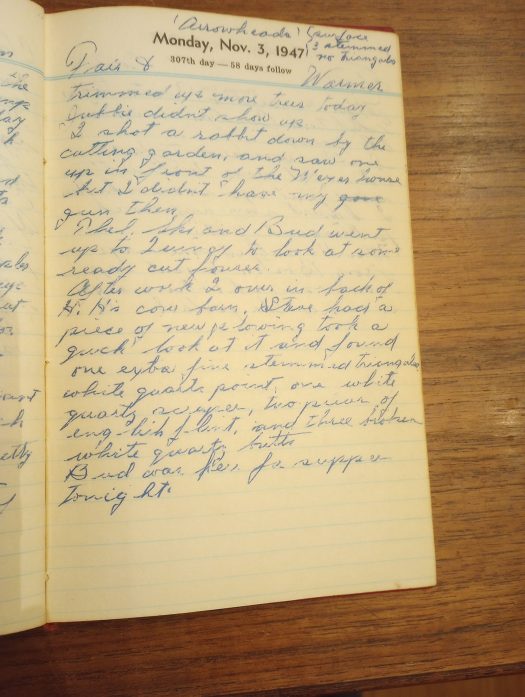 'Arrowheads' (surface
Monday, Nov. 3, 1947
3 stemmed
no triangular
307th day — 58 days follow
Fair &
Warmer
trimmed up more trees today
didn't show up.
I shot a rabbit down by the
cutting garden, and saw one
up in front of the house
but I didn't have my gone
gun then.
and Bud went
up to to look at some
ready cut houses.
After work I over in back of
H. H's cow barn, Steve had a
piece of new plowing took a
quick look at it and found
one extra fine stemmed triangular
white quartz point, one white
quartz scraper, two pieces of
english flint, and three broken
white quartz butts
Bud was here for supper
tonight.